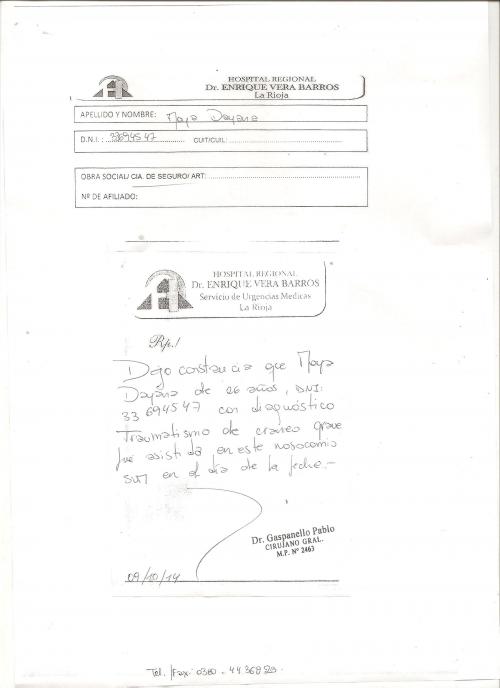 HOSPITAL REGIONAL
Dr. ENRIQUE VERA BARROS
La Rioja
APELLIDO Y NOMBRE: Maya Dayana
D.N.I. : 33694547 CUIT/CUIL:
OBRA SOCIAL/ CIA. DE SEGURO/ ART:
Nº DE AFILIADO:
HOSPITAL REGIONAL
Dr. ENRIQUE VERA BARROS
Servicio de Urgencias Medicas
La Rioja
Rp./
Dejo constancia que Maya
Dayana de 26 años, DNI:
33694547 con diagnóstico
Traumatismo de craneo grave
fue asistida en este nosocomio
en el día de la fecha.-
Dr. Gaspanello Pablo
CIRUJANO GRAL.
M.P. Nº 2463
09/10/14
Tel. /Fax: 0380 - 4436829